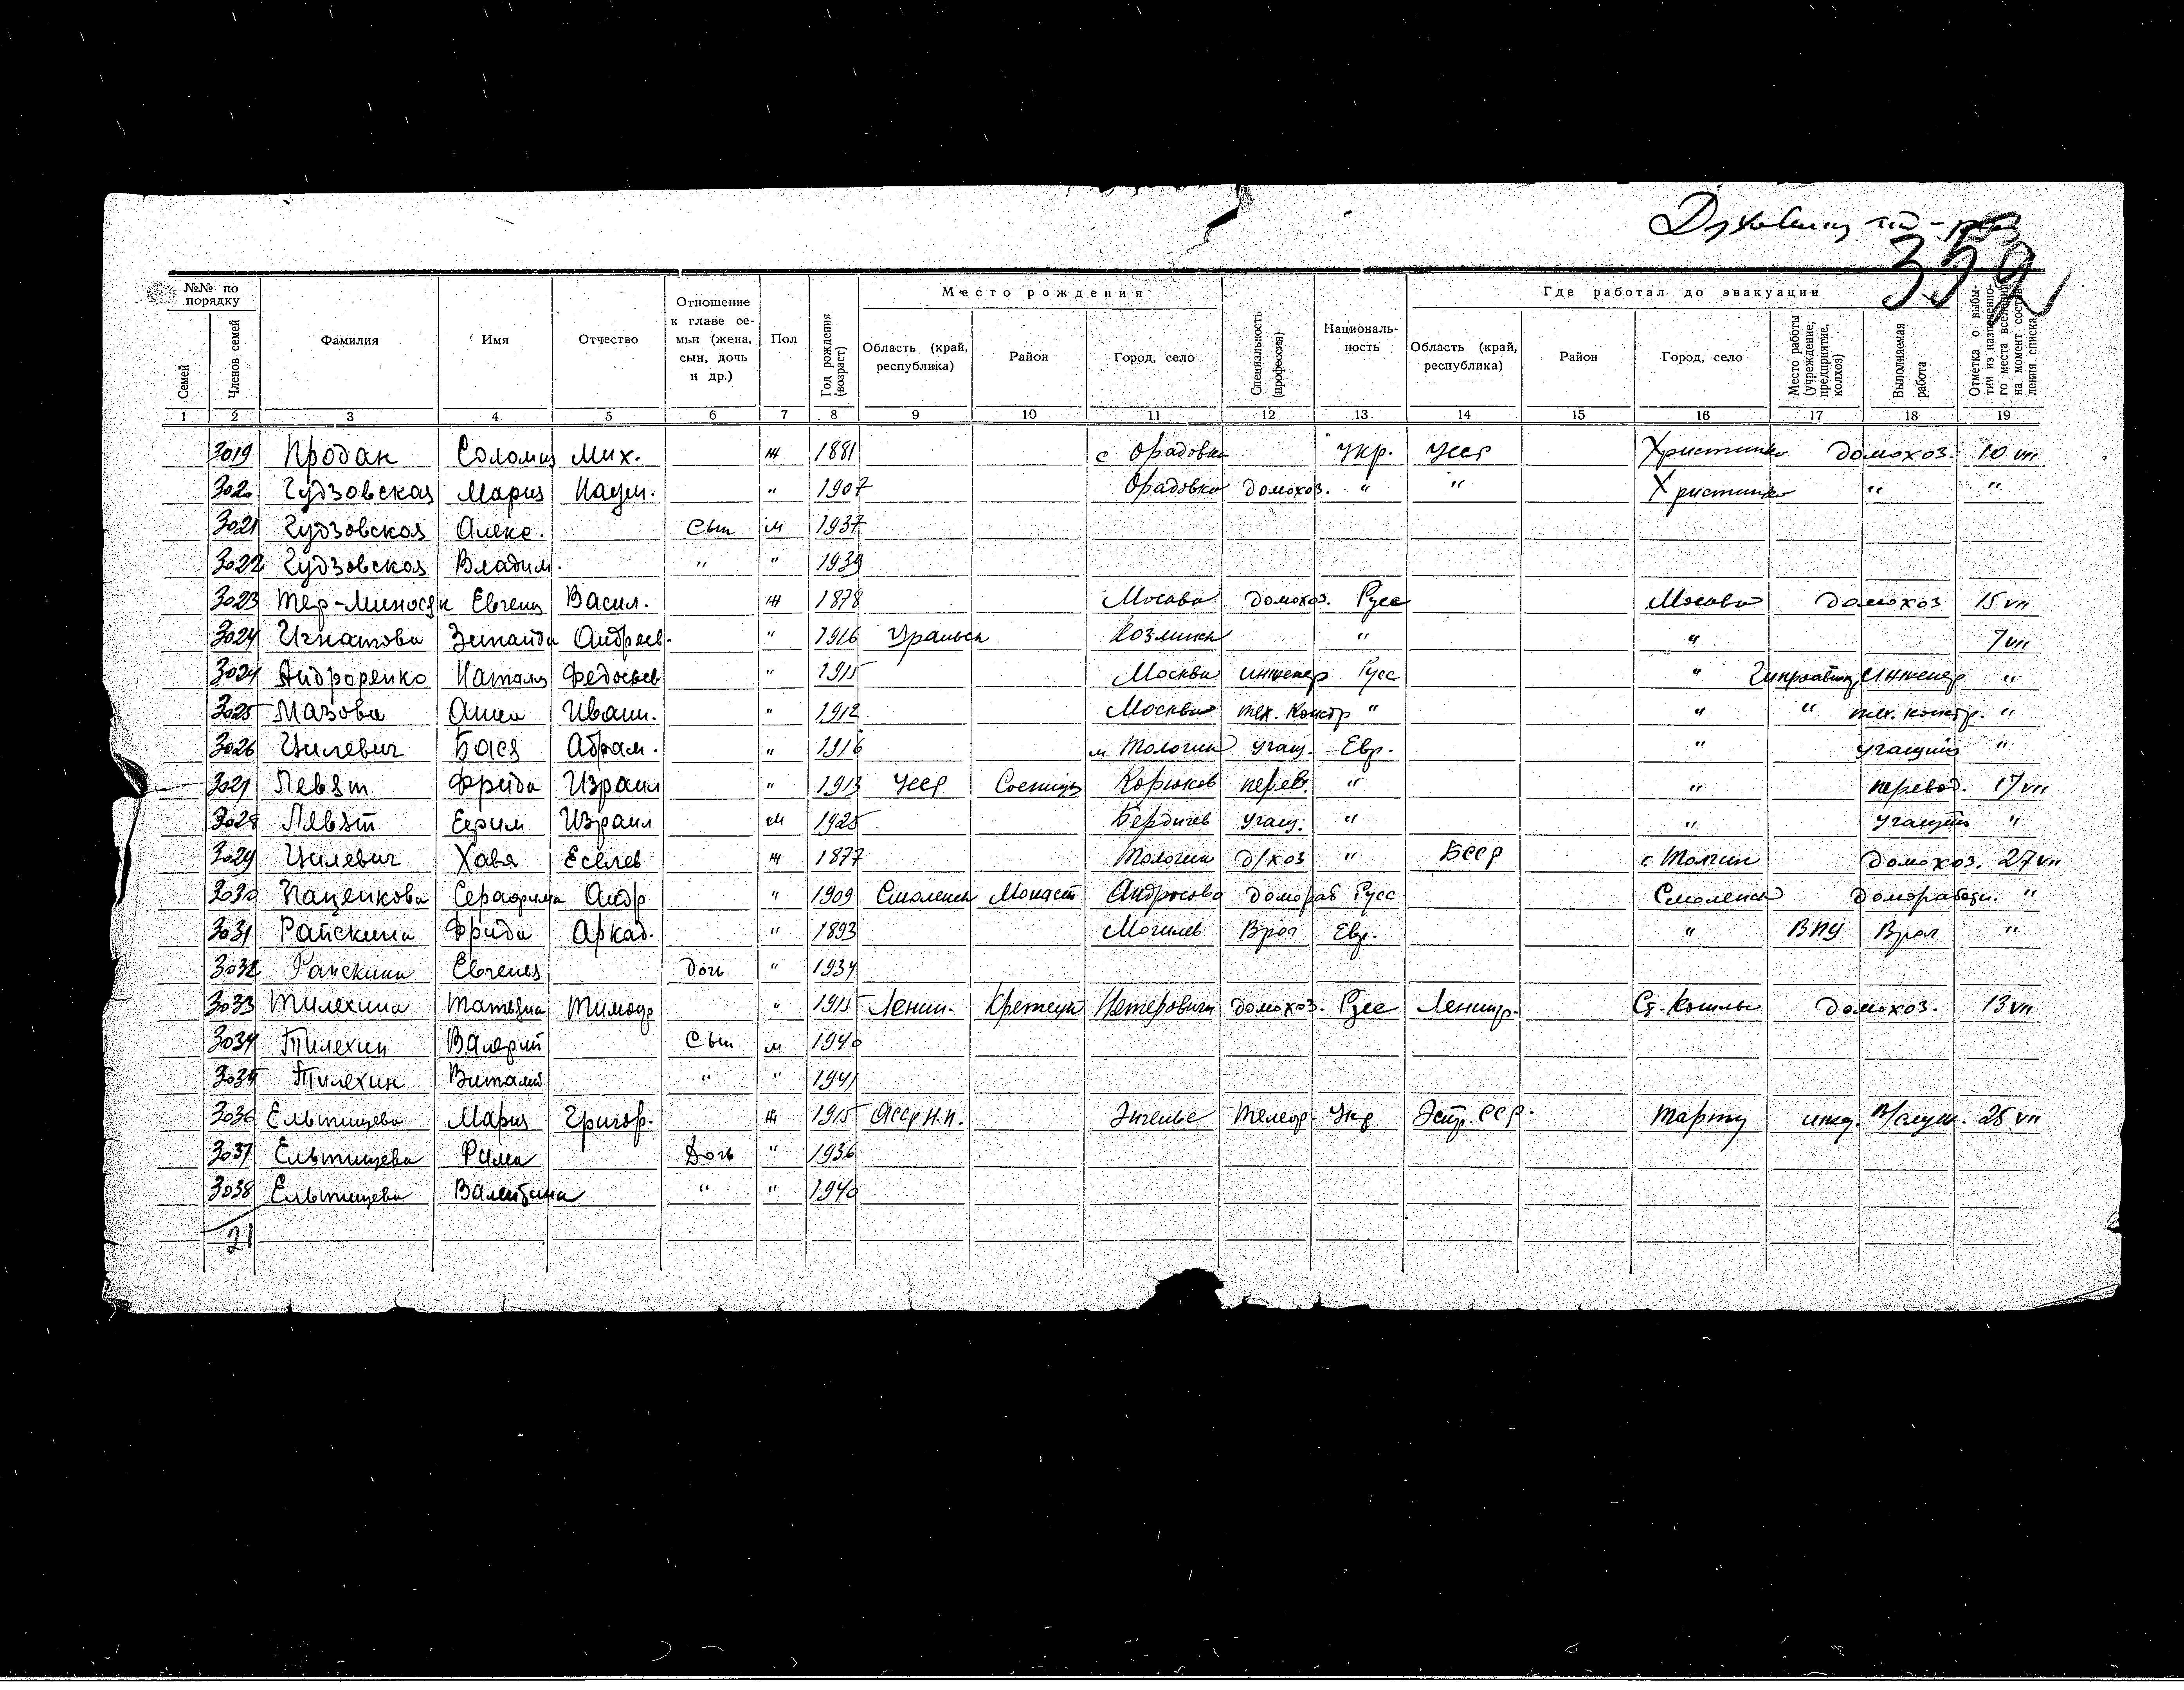 352
№№ по порядку Место рождения Где работал до эвакуации
Семей Членов семей Фамилия Имя Отчество Отношение к главе семьи (жена, сын, дочь и др.) Пол Год рождения (возраст) Область (край, республика) Район Город, село Специальность (профессия) Националь-ность Область (край, республика) Район Город, село Место работы (учреждение, предприятие, колхоз) Выполняемая работа Отметка о выбы-тии из назначенно-го места вселения на момент состав-ления списка
1 2 3 4 5 6 7 8 9 10 11 12 13 14 15 16 17 18 19
3019 Продан Соломия Мих. Ж 1881 с Орадовка Укр. УССР Христинко домохоз. 10 VII
3020 Гудзовская Мария Наум. " 1907 Орадовка домохоз. " " Христинко " "
3021 Гудзовская Алекс. Сын М 1937
3022 Гудзовская Владим. " " 1939
3023 Тер-Миносян Евгения Васил. Ж 1878 Москва домохоз. Русс Москва домохоз 15 VII
3024 Игнатова Зинаида Андреев. " 1916 Уральск " " 7 VII
3024 Наталия Федосеев " 1915 Москва инженер Русс " инженер "
3025 Мазова Анна Иван. " 1912 Москва тех. констр " " " тех. констр. "
3026 Цилевич Бася Абрам. " 1916 м. Толочин учащ. Евр. " учащийс "
3027 Левят Фрейда Израил " 1913 УССР Сосниця Корюков перев. " " перевод. 17 VII
3028 Левят Ефрим Израил М 1925 Бердичев учащ. " " учащийс "
3029 Цилевич Хавя Еселев Ж 1877 Толочин д/хоз " БССР г. Толчин домохоз. 27 VII
3030 Паценкова Серафима Андр " 1909 Смоленск Монаст Андросово домораб Русс Смоленск доморабоtн. "
3031 Райскина Фрида Аркад. " 1893 Могилев Врач Евр. " ВПУ Врач "
3032 Райскина Евгения дочь " 1934
3033 Тилехина Татьяна Тимоф " 1915 Ленин. Крестец Нетеровичи домохоз. Русс Ленингр. домохоз. 13 VII
3034 Тилехин Валерий Сын М 1940
3035 Тилехин Виталий " " 1941
3036 Ельтищева Мария Григор. Ж 1915 АССР Н.П. Энгельс Телегр. Укр Эст. ССР. Тарту 25 VII
3037 Ельтищева Рима Дочь " 1936
3038 Ельтищева Валентина " " 1940
21